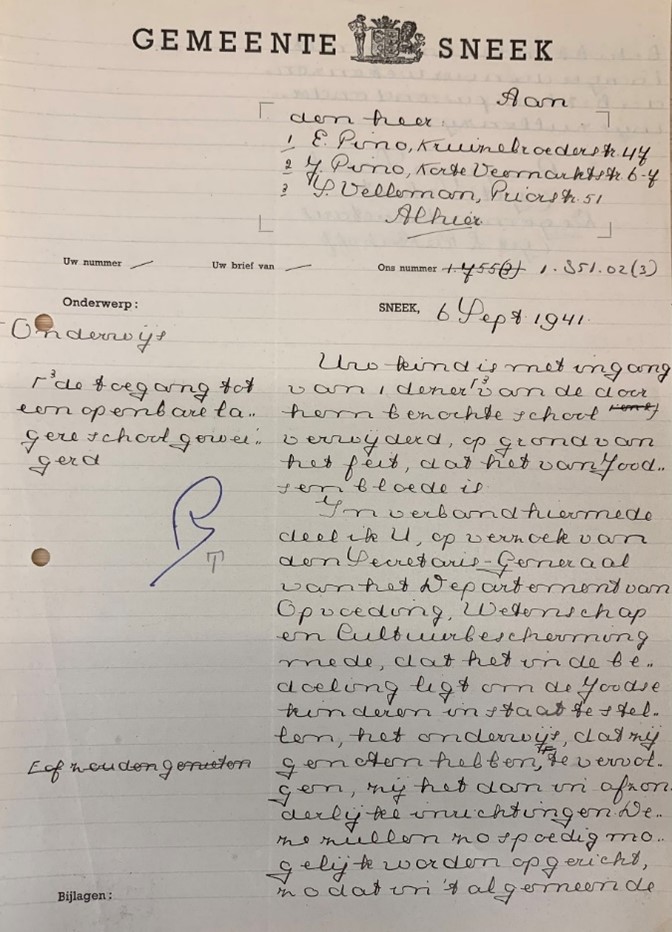 GEMEENTE SNEEK
Aan
den heer
1 E. Pino, Kruizebroederstr. 47
2 J. Pino, Korte Veemarktstr. 6-7
3 S. Velleman, Priorstr. 51
Alhier
Uw nummer — Uw brief van — Ons nummer 1.755(3) 1.851.02(3)
Onderwerp:
SNEEK, 6 Sept 1941.
Onderwijs
Γ³de toegang tot
een openbare la..
gere school gewei..
gerd
Uw kind is met ingang
van 1 dezer Γ³van de door
hem bezochte school
verwijderd, op grond van
het feit, dat het van Jood..
sen bloede is.
In verband hiermede
deel ik U, op verzoek van
den Secretaris-Generaal
van het Departement van
Opvoeding, Wetenschap
en Cultuurbescherming
mede, dat het in de be..
doeling ligt om de Joodse
kinderen in staat te stel..
len, het onderwijs, dat zij
genoten hebben, te vervol..
gen, zij het dan in afzon..
derlijke inrichtingen. De..
ze zullen zo spoedig mo..
gelijk worden opgericht,
zodat in 't algemeen de
of zouden genieten
Bijlagen: